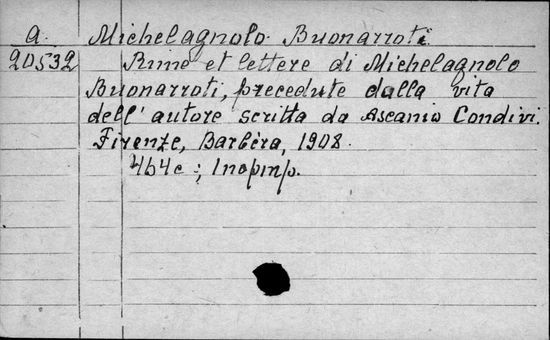 a. Michelagnolo Buonarroti.
20532 Rime et lettere di Michelagnolo
Buonarroti, precedute dalla vita
dell' autore scritta da Ascanio Condivi.
Firenze, Barbèra, 1908.
464c; 1